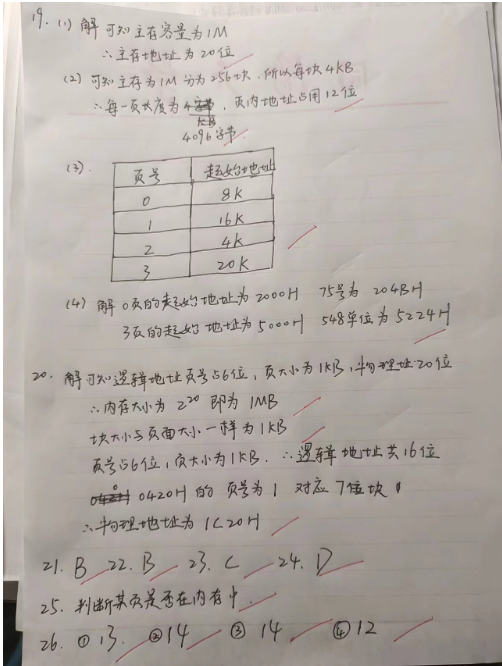 19.(1) 解 可知主存容量为1M
∴主存地址为20位
(2) 可知主存为1M 分为256块.所以每块4KB
∴每一页长度为 , 页内地址占用12位
4096字节
(3).
页号 起始地址
0 8K
1 16K
2 4K
3 20K
(4) 解 0页的起始地址为2000H 75号为 204BH
3页的起始地址为5000H 548单位为5224H
20. 解可知逻辑地址页号占6位,页大小为1KB,物理址20位
∴内存大小为 2²⁰ 即为 1MB
块大小与页面大小一样为1KB
页号占6位,页大小为1KB. ∴逻辑地址共16位
0420H 的 页号为1 对应7位块
∴物理地址为1C20H
21. B 22. B 23. C 24. D
25. 判断某页是否在内存中
26. ① 13. ②14 ③ 14 ④12